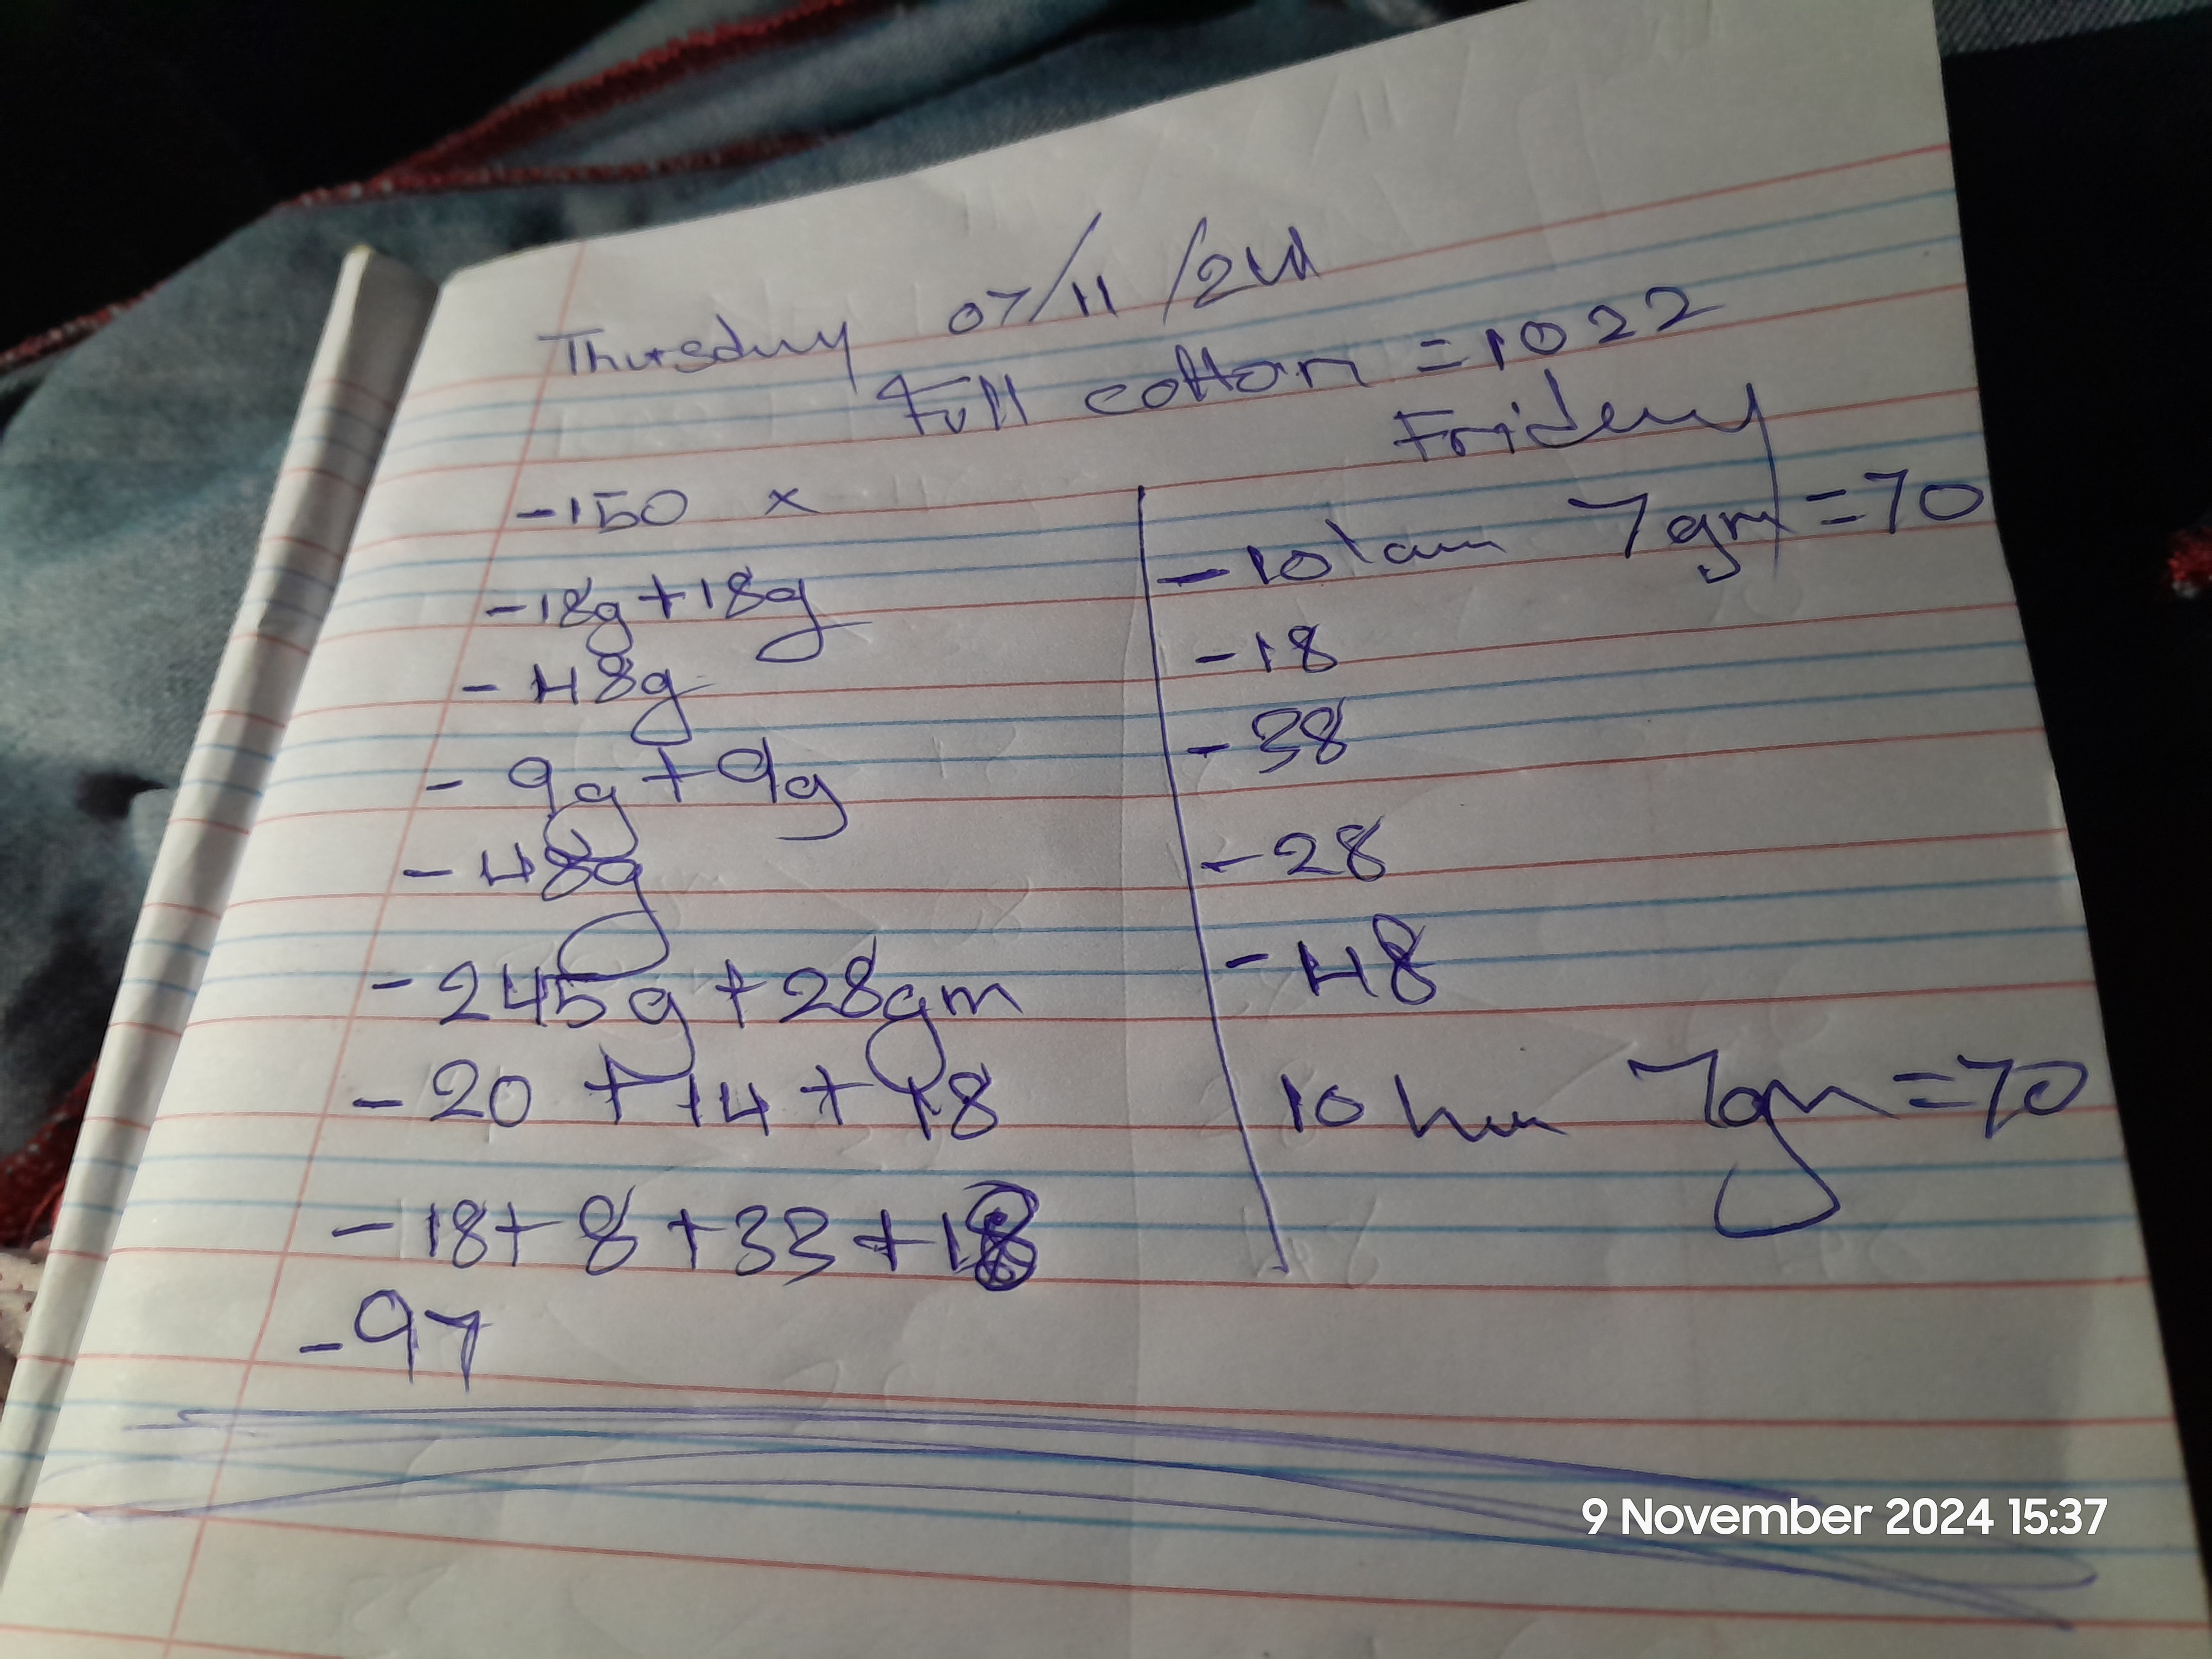 Thursday 07/11/24
Full cotton = 1022
-150 x
-18g+18g
-48g
-9g+9g
-48g
-245g+28gm
-20+14+18
-18+8+33+18
-97
Friday
-10 7gm=70
-18
-38
-28
-48
10 7gm=70
9 November 2024 15:37